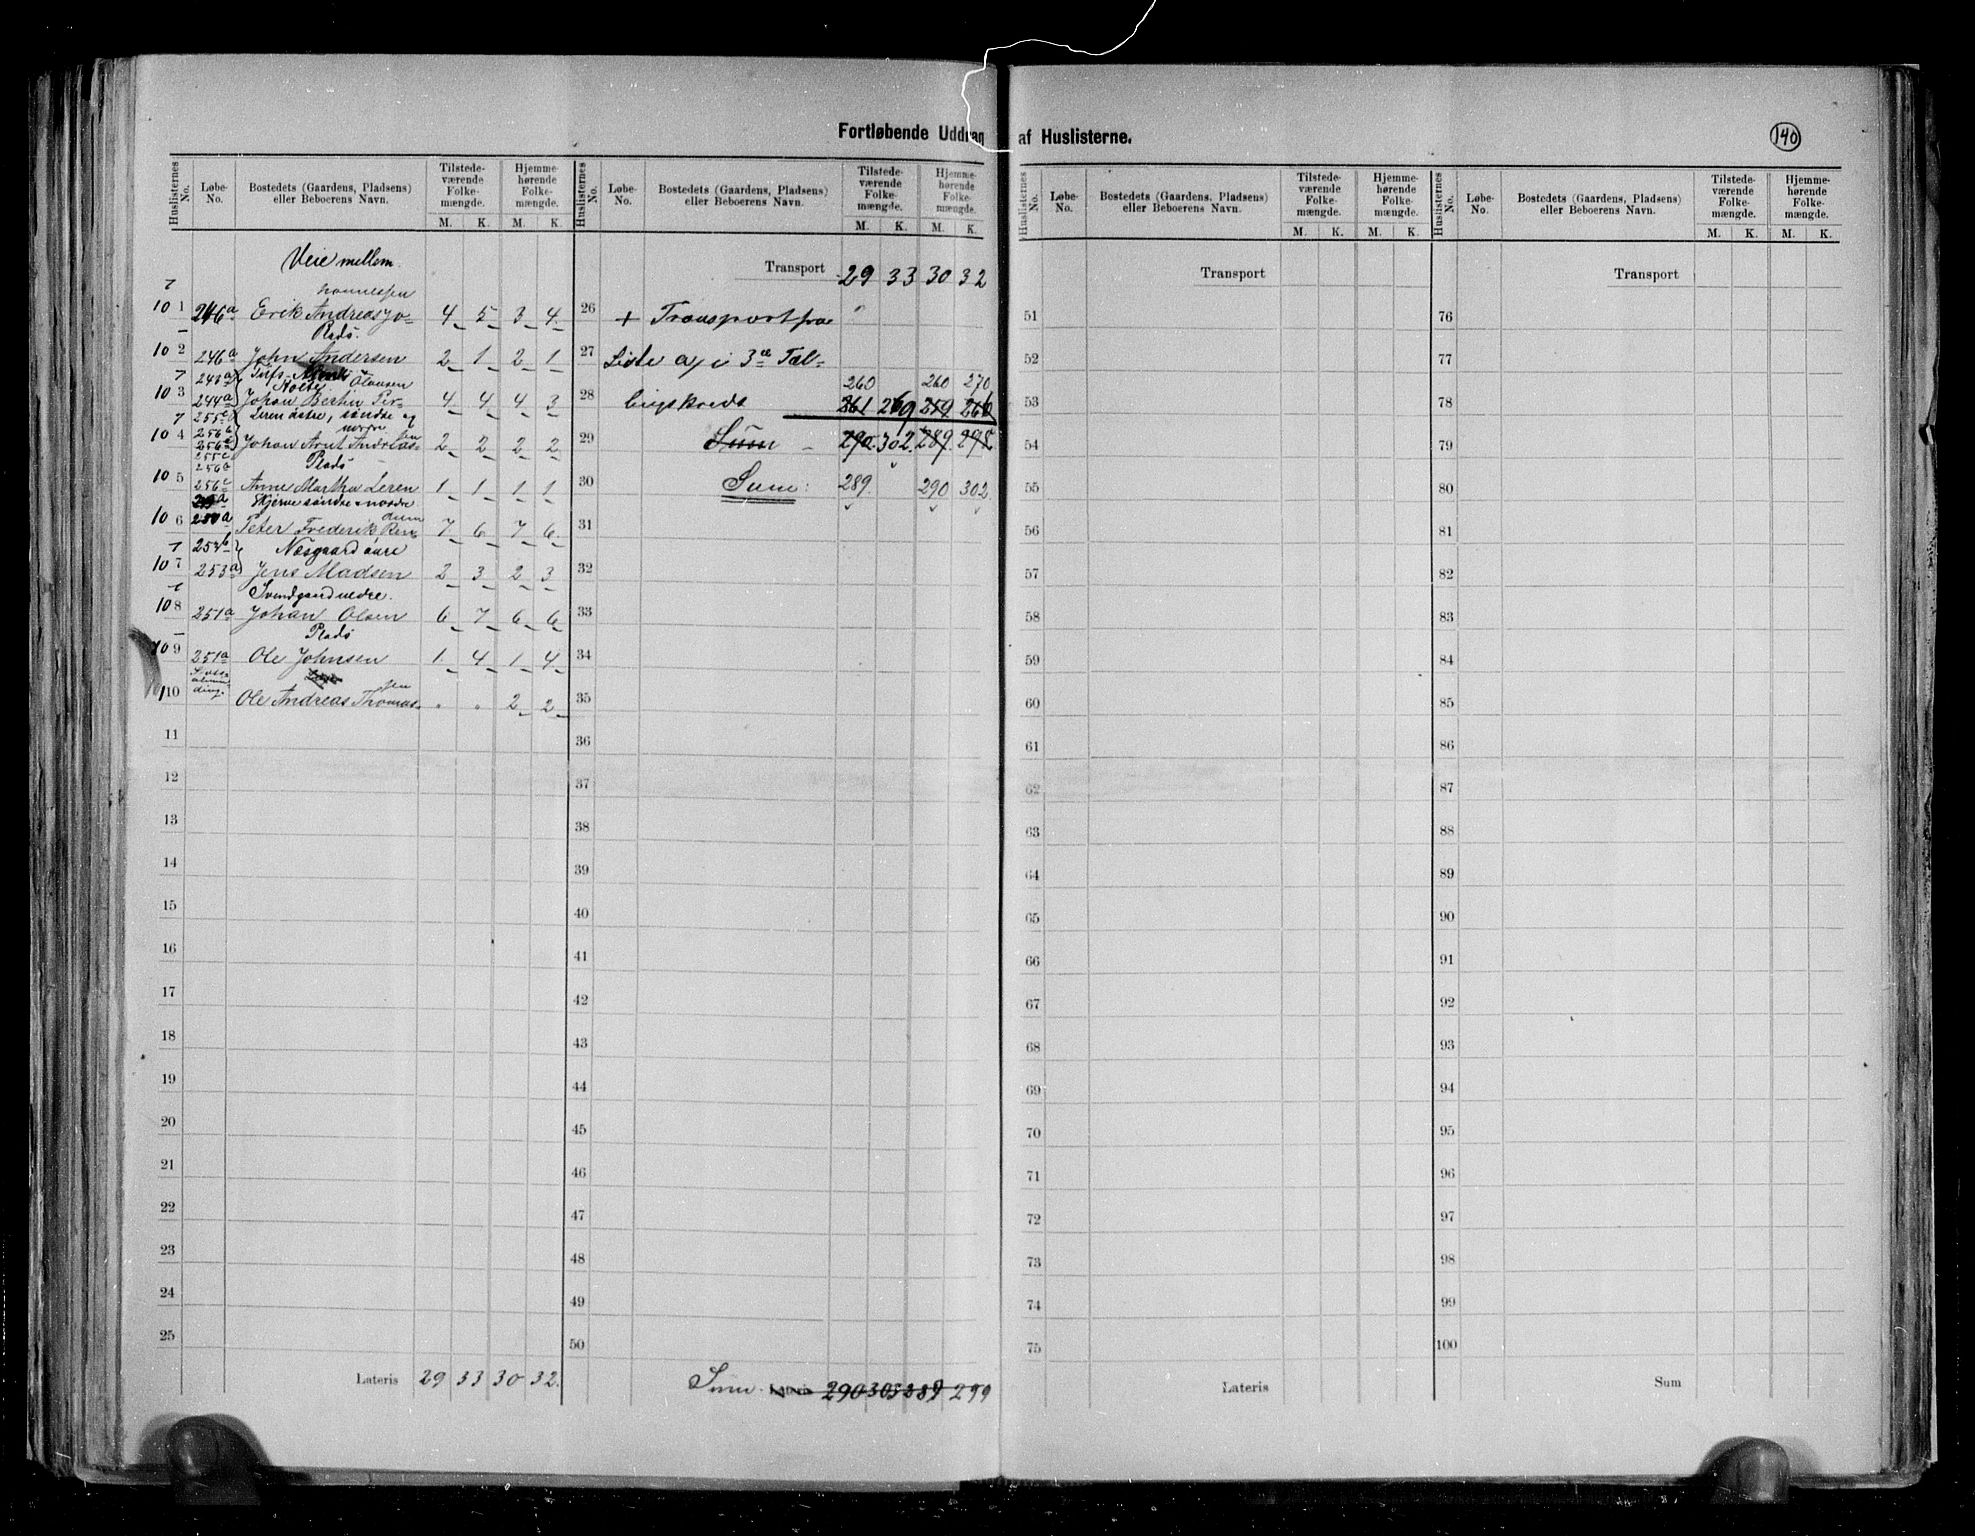 Fortløbende Uddrag af Huslisterne.
140
Huslisternes No. Løbe-No. Bostedets (Gaardens, Pladsens) eller Beboerens Navn. Tilstedeværende Folkemængde. M. K. Hjemmehørende Folkemængde. M. K.
Veie mellem
hannessen
101 246a Erik Andreas Jo- 4 5 3 4
Plads.
102 246a John Andersen 2 1 2 1
243a
Olausen
103 244a Johan Bertin Per- 4 4 4 3
255c Leren østre, søndre og
256b nordre
104 256d Johan Arnt Andreas- 2 2 2 2
255c Plads
256a
105 256c Anne Martha Leren 1 1 1 1
Skjerve søndre nordre
106 Peter Frederik Ren- 7 6 7 6
254b Næsgaard øvre
107 253a Jens Madsen 2 3 2 3
Svendgaard nedre.
108 251a Johan Olsen 6 7 6 6
Plads
109 251a Ole Johnsen 1 4 1 4
sen
110 Ole Andreas Thomas- " " 2 2
11
12
13
14
15
16
17
18
19
20
21
22
23
24
25
Lateris 29 33 30 32
Huslisternes No. Løbe-No. Bostedets (Gaardens, Pladsens) eller Beboerens Navn. Tilstedeværende Folkemængde. M. K. Hjemmehørende Folkemængde. M. K.
Transport 29 33 30 32
26 + Transport fra
27 Liste a, i 3die Tæl-
260 260 270
28 lingskreds 261 269 259 266
29 Sum 290 302 289 298
30 Sum: 289. 290 302.
31
32
33
34
35
36
37
38
39
40
41
42
43
44
45
46
47
48
49
50
Sum Lateris 290 303 289 299
Huslisternes No. Løbe-No. Bostedets (Gaardens, Pladsens) eller Beboerens Navn. Tilstedeværende Folkemængde. M. K. Hjemmehørende Folkemængde. M. K.
Transport
51
52
53
54
55
56
57
58
59
60
61
62
63
64
65
66
67
68
69
70
71
72
73
74
75
Lateris
Huslisternes No. Løbe-No. Bostedets (Gaardens, Pladsens) eller Beboerens Navn. Tilstedeværende Folkemængde. M. K. Hjemmehørende Folkemængde. M. K.
Transport
76
77
78
79
80
81
82
83
84
85
86
87
88
89
90
91
92
93
94
95
96
97
98
99
100
Sum